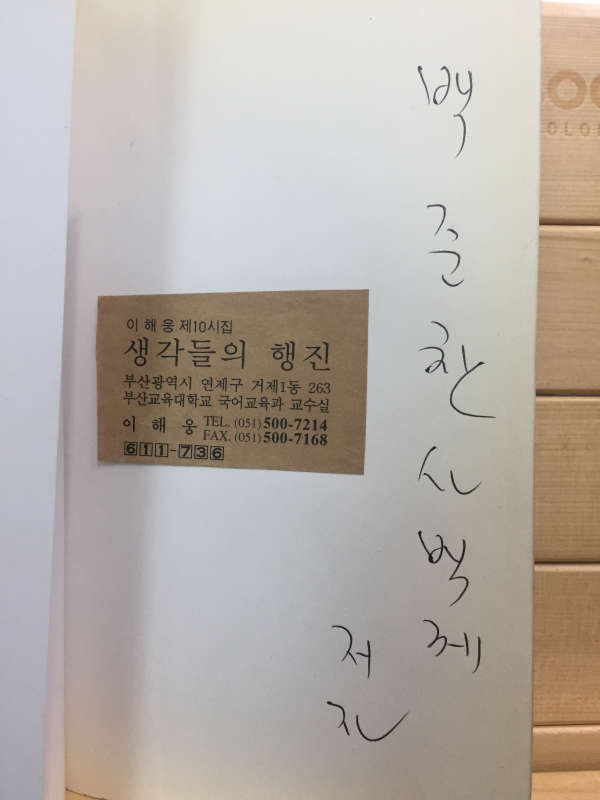 이 해 웅 제10시집
생각들의 행진
부산광역시 연제구 거제1동 263
부산교육대학교 국어교육과 교수실
이 해 웅 TEL. (051) 500-7214
FAX. (051) 500-7168
611-736
백
준
찬
시
백
께
저